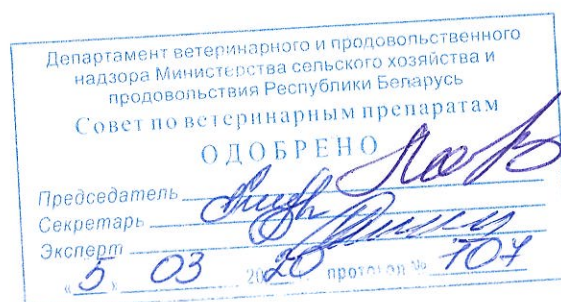 Департамент ветеринарного и продовольственного
надзора Министерства сельского хозяйства и
продовольствия Республики Беларусь
Совет по ветеринарным препаратам
ОДОБРЕНО
Председатель
Секретарь
Эксперт
« 5 » 03 2020 протокол № 107